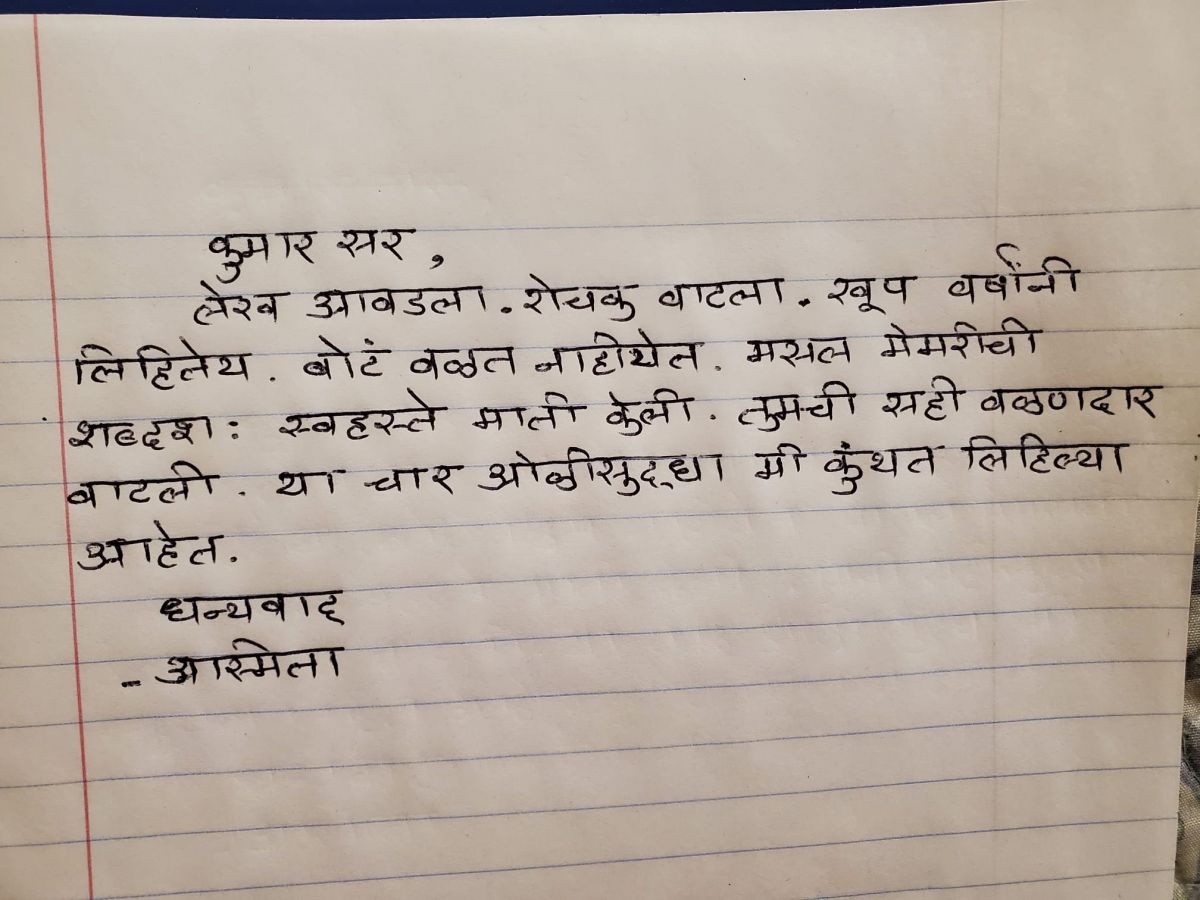 कुमार सर,
लेख आवडला. रोचक वाटला. खूप वर्षांनी
लिहितेय. बोटं वळत नाहीयेत. मसल मेमरीची
शब्दश: स्वहस्ते माती केली. तुमची सही वळणदार
वाटली. या चार ओळीसुद्धा मी कुंथत लिहिल्या
आहेत.
धन्यवाद
- अस्मिता